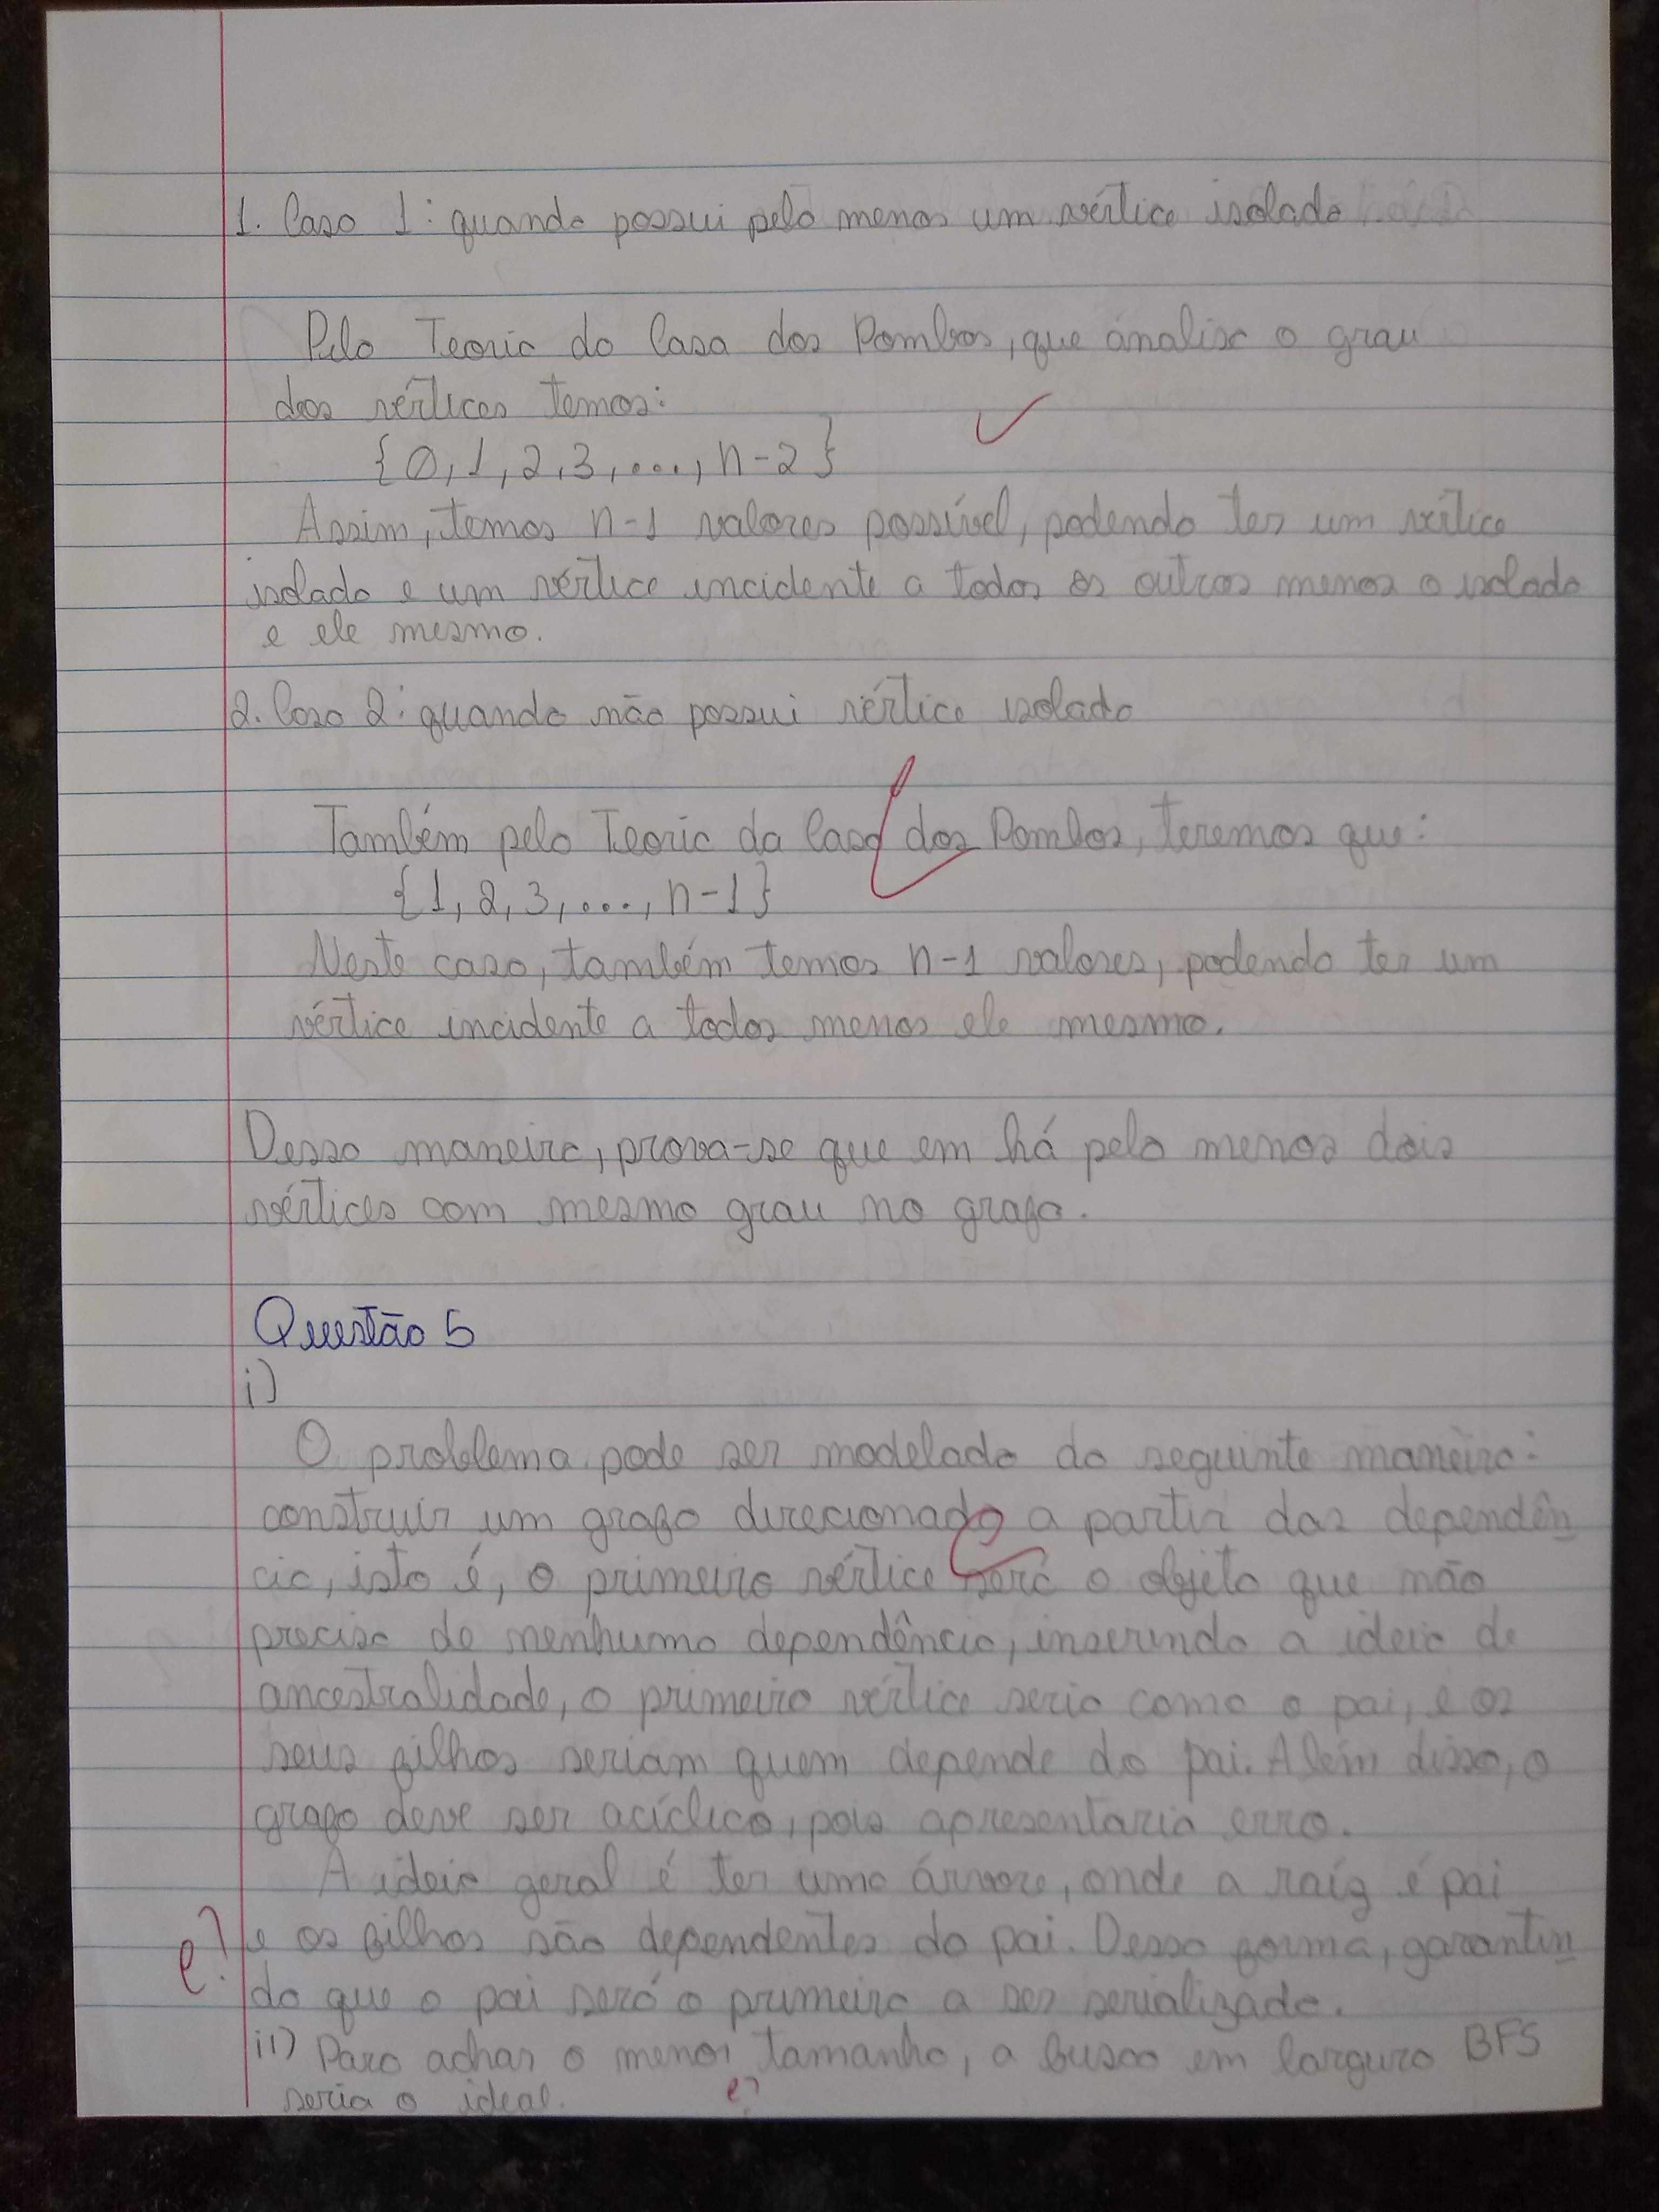 1. Caso 1: quando possui pelo menos um vértice isolado
Pelo Teoria da Casa dos Pombos, que analisa o grau
dos vértices temos:
{0, 1, 2, 3, ..., n-2}
Assim, temos n-1 valores possível, podendo ter um vértice
isolado e um vértice incidente a todos os outros menos o isolado
e ele mesmo.
2. Caso 2: quando não possui vértice isolado
Também pelo Teoria da Casa dos Pombos, teremos que:
{1, 2, 3, ..., n-1}
Neste caso, também temos n-1 valores, podendo ter um
vértice incidente a todos menos ele mesmo.
Dessa maneira, prova-se que em há pelo menos dois
vértices com mesmo grau no grafo.
Questão 5
i)
O problema pode ser modelado da seguinte maneira:
construir um grafo direcionado a partir das dependên
cia, isto é, o primeiro vértice será o objeto que não
precisa de nenhuma dependência, inserindo a ideia de
ancestralidade, o primeiro vértice seria como o pai, e os
seus filhos seriam quem depende do pai. Além disso, o
grafo deve ser acíclico, pois apresentaria erro.
A ideia geral é ter uma árvore, onde a raíz é pai
e? e os filhos são dependentes do pai. Dessa forma, garantin
do que o pai será o primeiro a ser serializado.
ii) Para achar o menor tamanho, a busca em largura BFS
seria o ideal. e?